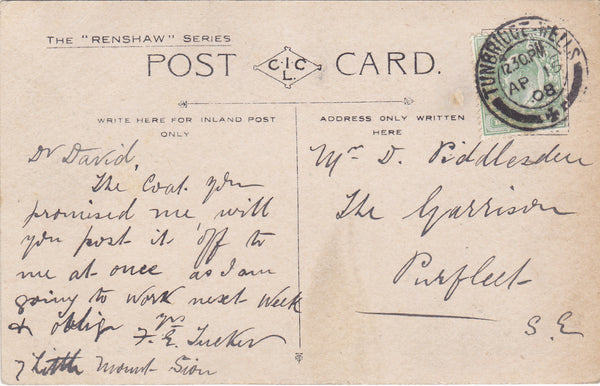 THE "RENSHAW" SERIES
POST CARD.
C.I.C
L.
WRITE HERE FOR INLAND POST
ONLY
ADDRESS ONLY WRITTEN
HERE
TUNBRIDGE WELLS
12.30 PM
AP 15
08
Dr David,
The Coat you
promised me, will
you post it off to
me at once as I am
going to work next week
& oblige yrs
F. E. Tucker
7 Little Mount Sion
Mr D. Piddlesden
The Garrison
Purfleet
S.E